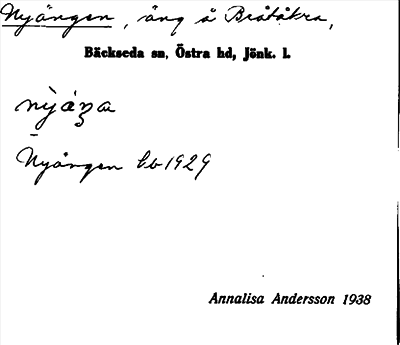 Nyängen, äng å Bråtåkra,
Bäckseda sn, Östra hd, Jönk. l.
Nyängen lb 1929
Annalisa Andersson 1938